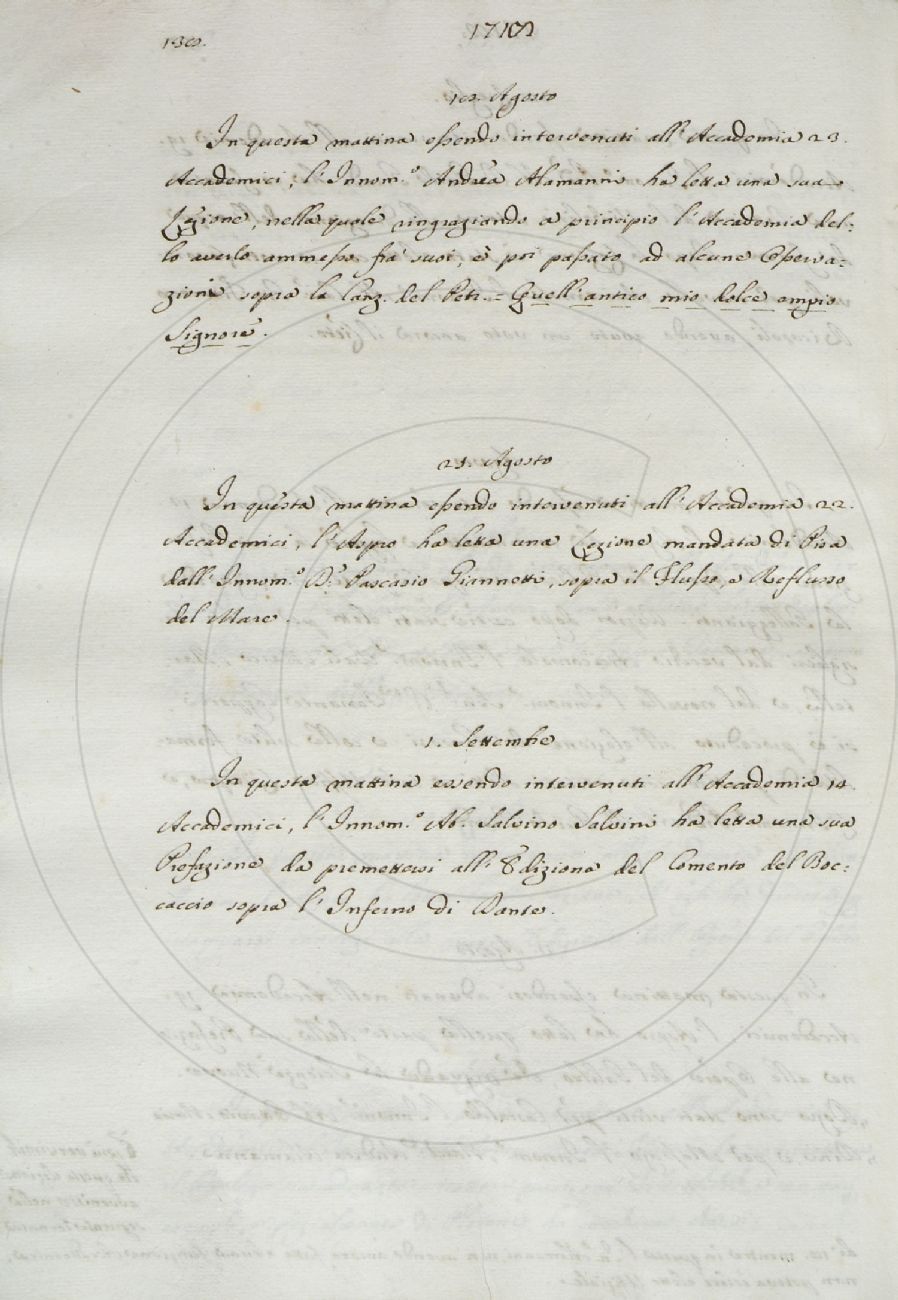 130.
1718
18. Agosto
In questa mattina essendo intervenuti all' Accademia 23.
Accademici, l'Innom.º Andrea Alamanni ha letta una sua
Lezione, nella quale ringraziando a principio l'Accademia del-
lo averlo ammesso fra' suoi, è poi passato ad alcune Osserva-
zioni sopra la Canz. del Petr. = Quell' antico mio dolce empio
Signore.
25. Agosto
In questa mattina essendo intervenuti all' Accademia 22.
Accademici, l'Aspro ha letta una Lezione mandata di Pisa
dall' Innom.º D.r Pascasio Giannetti, sopra il Flusso, e Reflusso
del Mare.
1. Settembre
In questa mattina essendo intervenuti all' Accademia 14
Accademici, l'Innom.º Ab. Salvino Salvini ha letta una sua
Prefazione da premettersi all' Edizione del Comento del Boc-
caccio sopra l'Inferno di Dante.